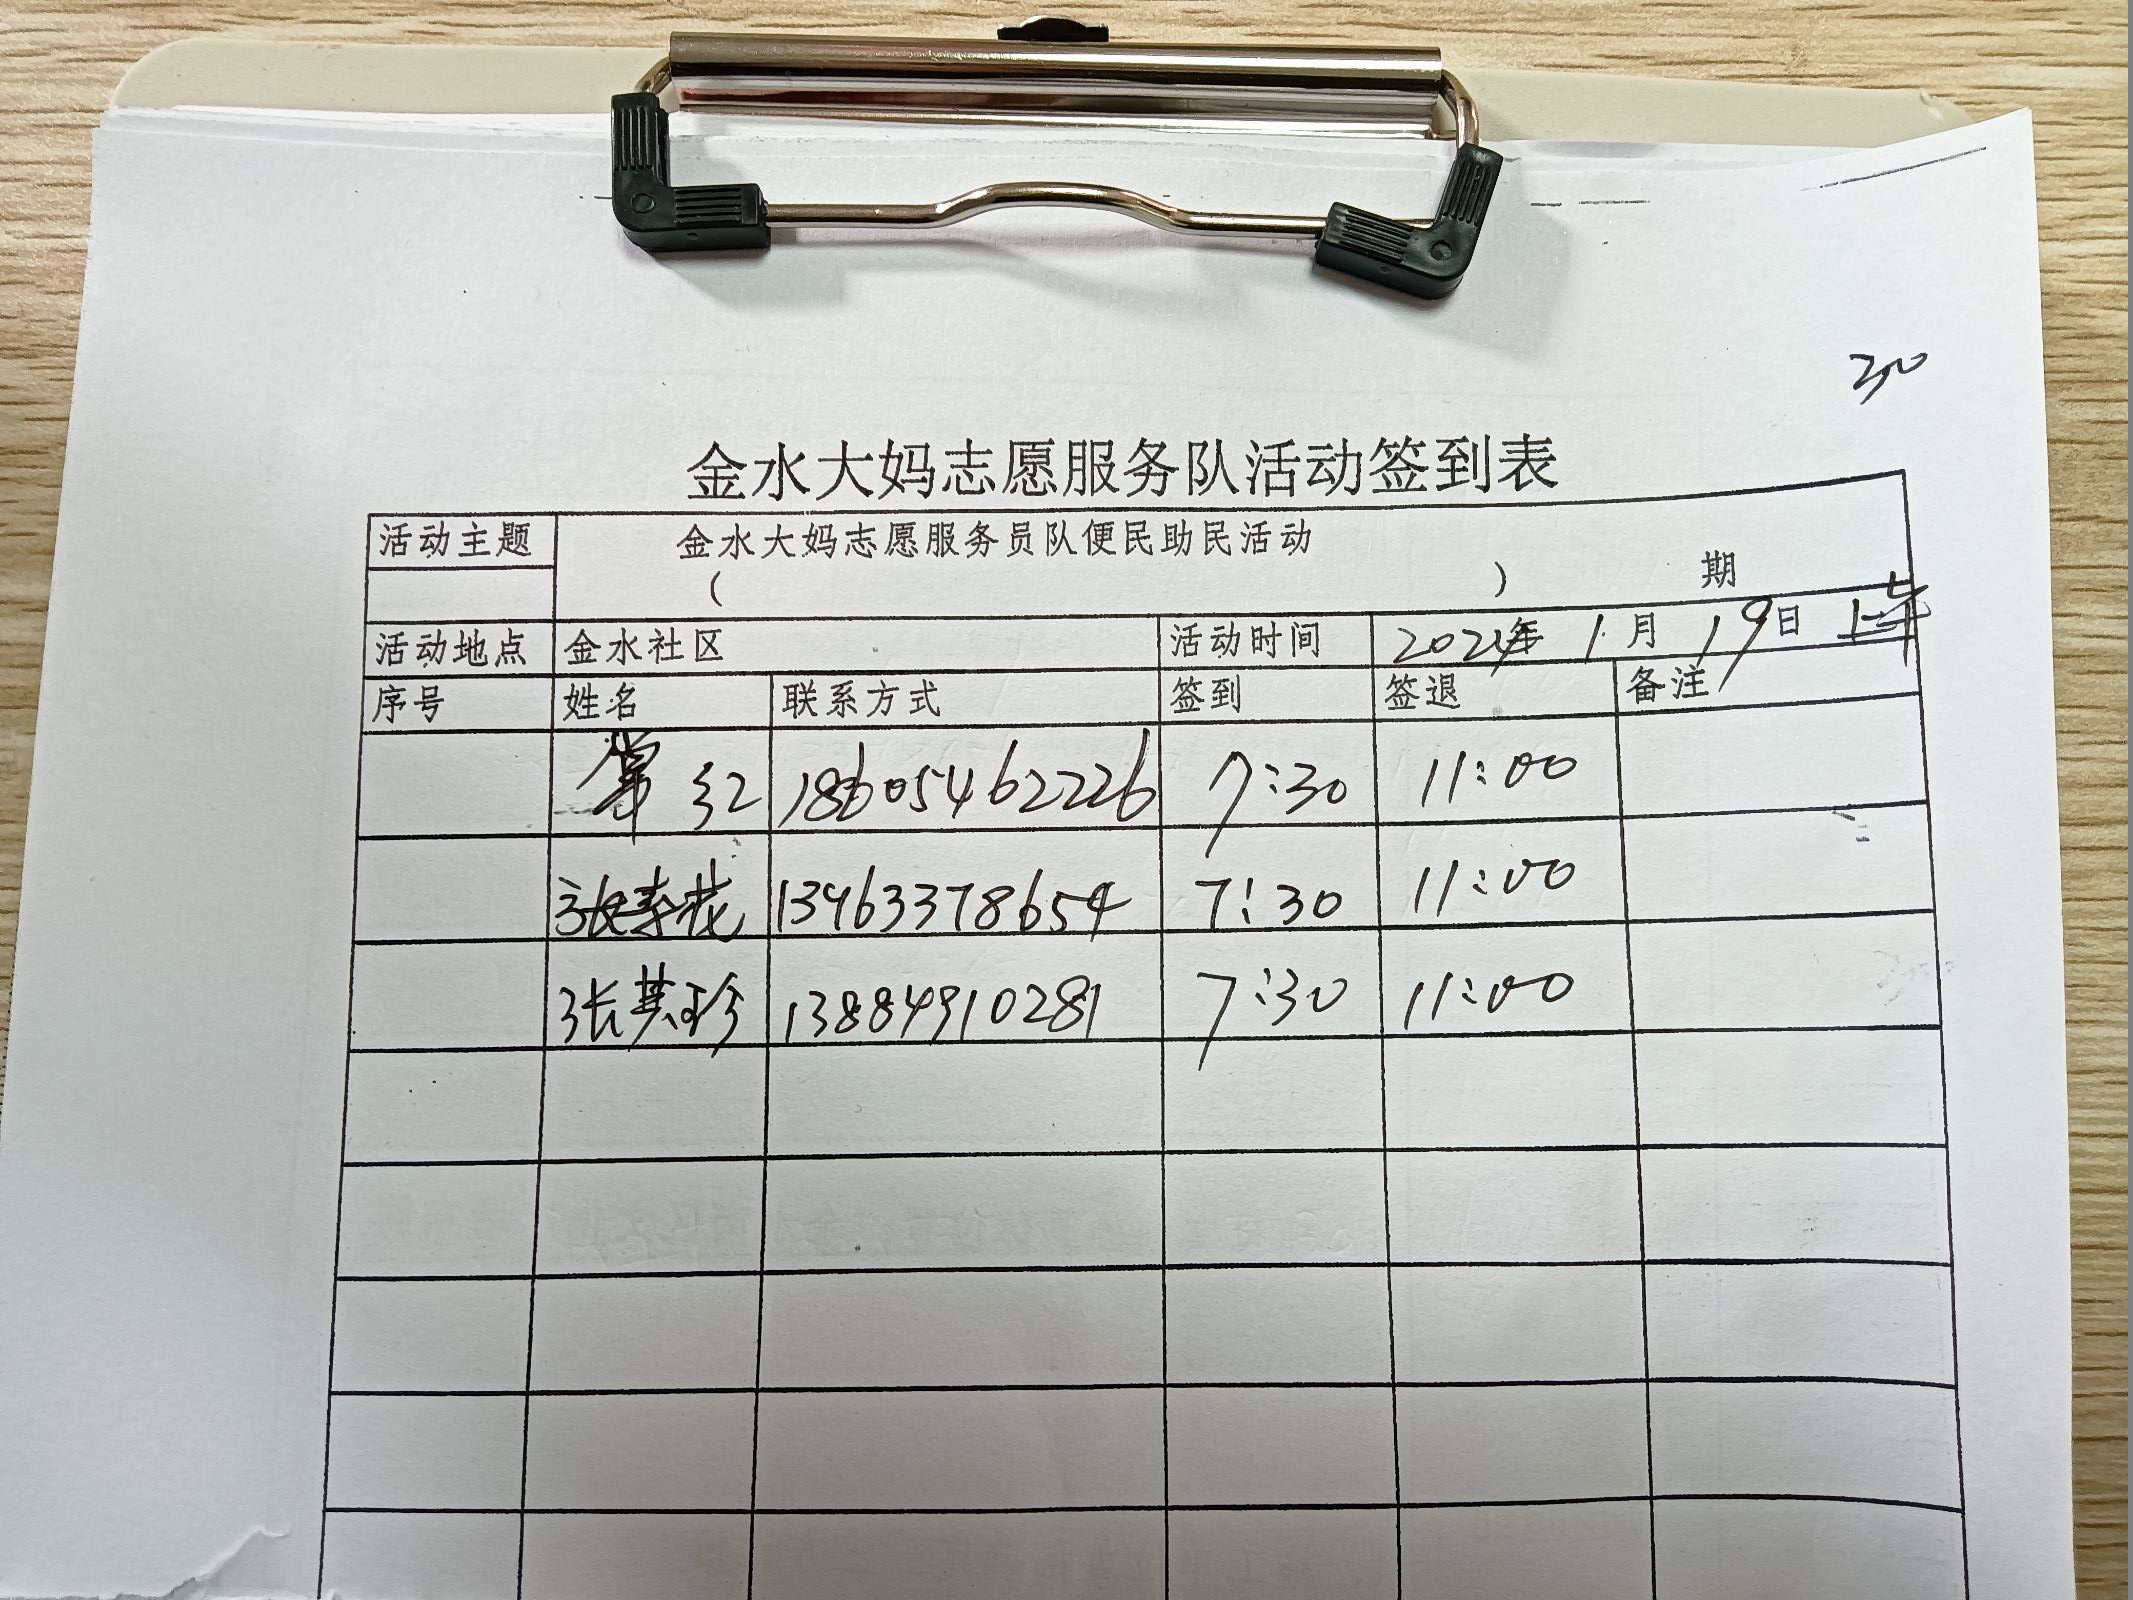 30
金水大妈志愿服务队活动签到表
活动主题 金水大妈志愿服务员队便民助民活动
( ) 期
活动地点 金水社区 活动时间 2024年 1 月 19日 上午
序号 姓名 联系方式 签到 签退 备注
红 18605462226 7:30 11:00
张 13963378654 7:30 11:00
张英珍 13884910281 7:30 11:00